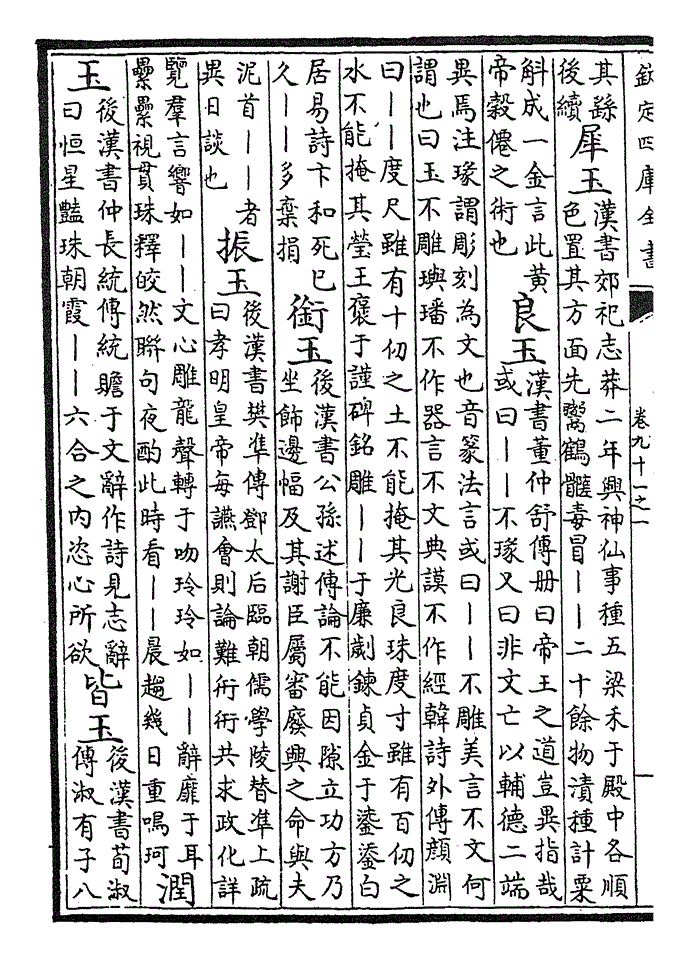 欽定四庫全書
卷九十一之一
其繇
後續
犀玉
漢書郊祀志莽二年興神仙事種五粱禾于殿中各順
色置其方面先鬻鶴髓毒冒——二十餘物漬種計粟
斛成一金言此黃
帝穀僊之術也
良玉
漢書董仲舒傳册曰帝王之道豈異指哉
或曰——不瑑又曰非文亡以輔德二端
異焉注瑑謂彫刻為文也音篆法言或曰——不雕美言不文何
謂也曰玉不雕璵璠不作器言不文典謨不作經韓詩外傳顏淵
曰——度尺雖有十仞之土不能掩其光良珠度寸雖有百仞之
水不能掩其瑩王褒于謹碑銘雕——于廉劌鍊貞金于鎏鎏白
居易詩卞和死已
久——多棄捐
衒玉
後漢書公孫述傳論不能因隙立功方乃
坐飾邊幅及其謝臣屬審廢興之命與夫
泥首——者
異日談也
振玉
後漢書樊凖傳鄧太后臨朝儒學陵替凖上疏
曰孝明皇帝每讌會則論難衎衎共求政化詳
覽羣言響如——文心雕龍聲轉于吻玲玲如——辭靡于耳
纍纍視貫珠釋皎然聯句夜酌此時看——晨趨幾日重鳴珂
潤
玉
後漢書仲長統傳統贍于文辭作詩見志辭
曰恒星豔珠朝霞——六合之内恣心所欲
皆玉
後漢書荀淑
傳淑有子八